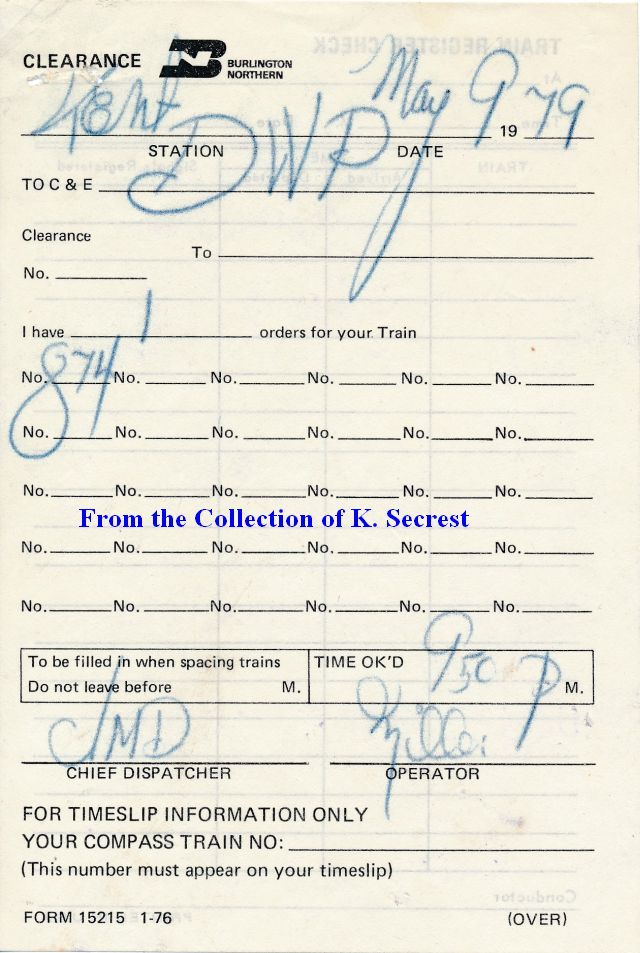 CLEARANCE BURLINGTON NORTHERN
Kent May 9 1979
STATION DATE
TO C & E DWP
Clearance
No. To
I have 1 orders for your Train
No. 874 No. No. No. No. No.
No. No. No. No. No. No.
No. No. No. No. No. No.
From the Collection of K. Secrest
No. No. No. No. No. No.
No. No. No. No. No. No.
To be filled in when spacing trains TIME OK'D
Do not leave before M. 950 P M.
JMD
CHIEF DISPATCHER OPERATOR
FOR TIMESLIP INFORMATION ONLY
YOUR COMPASS TRAIN NO:
(This number must appear on your timeslip)
FORM 15215 1-76 (OVER)